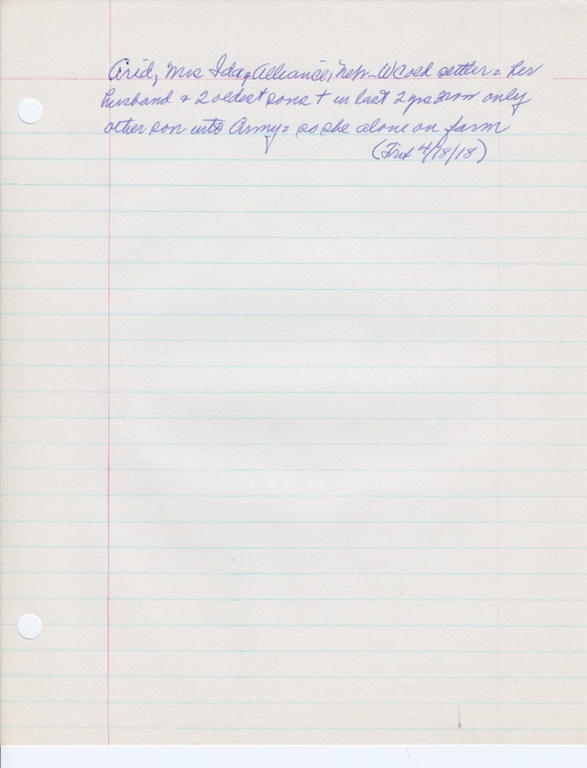 Arid, Mrs Ida, Alliance, Neb. - settler = her
husband & 2 oldest sons † in last 2 yrs only
other son into Army = so she alone on farm
4/18/18)